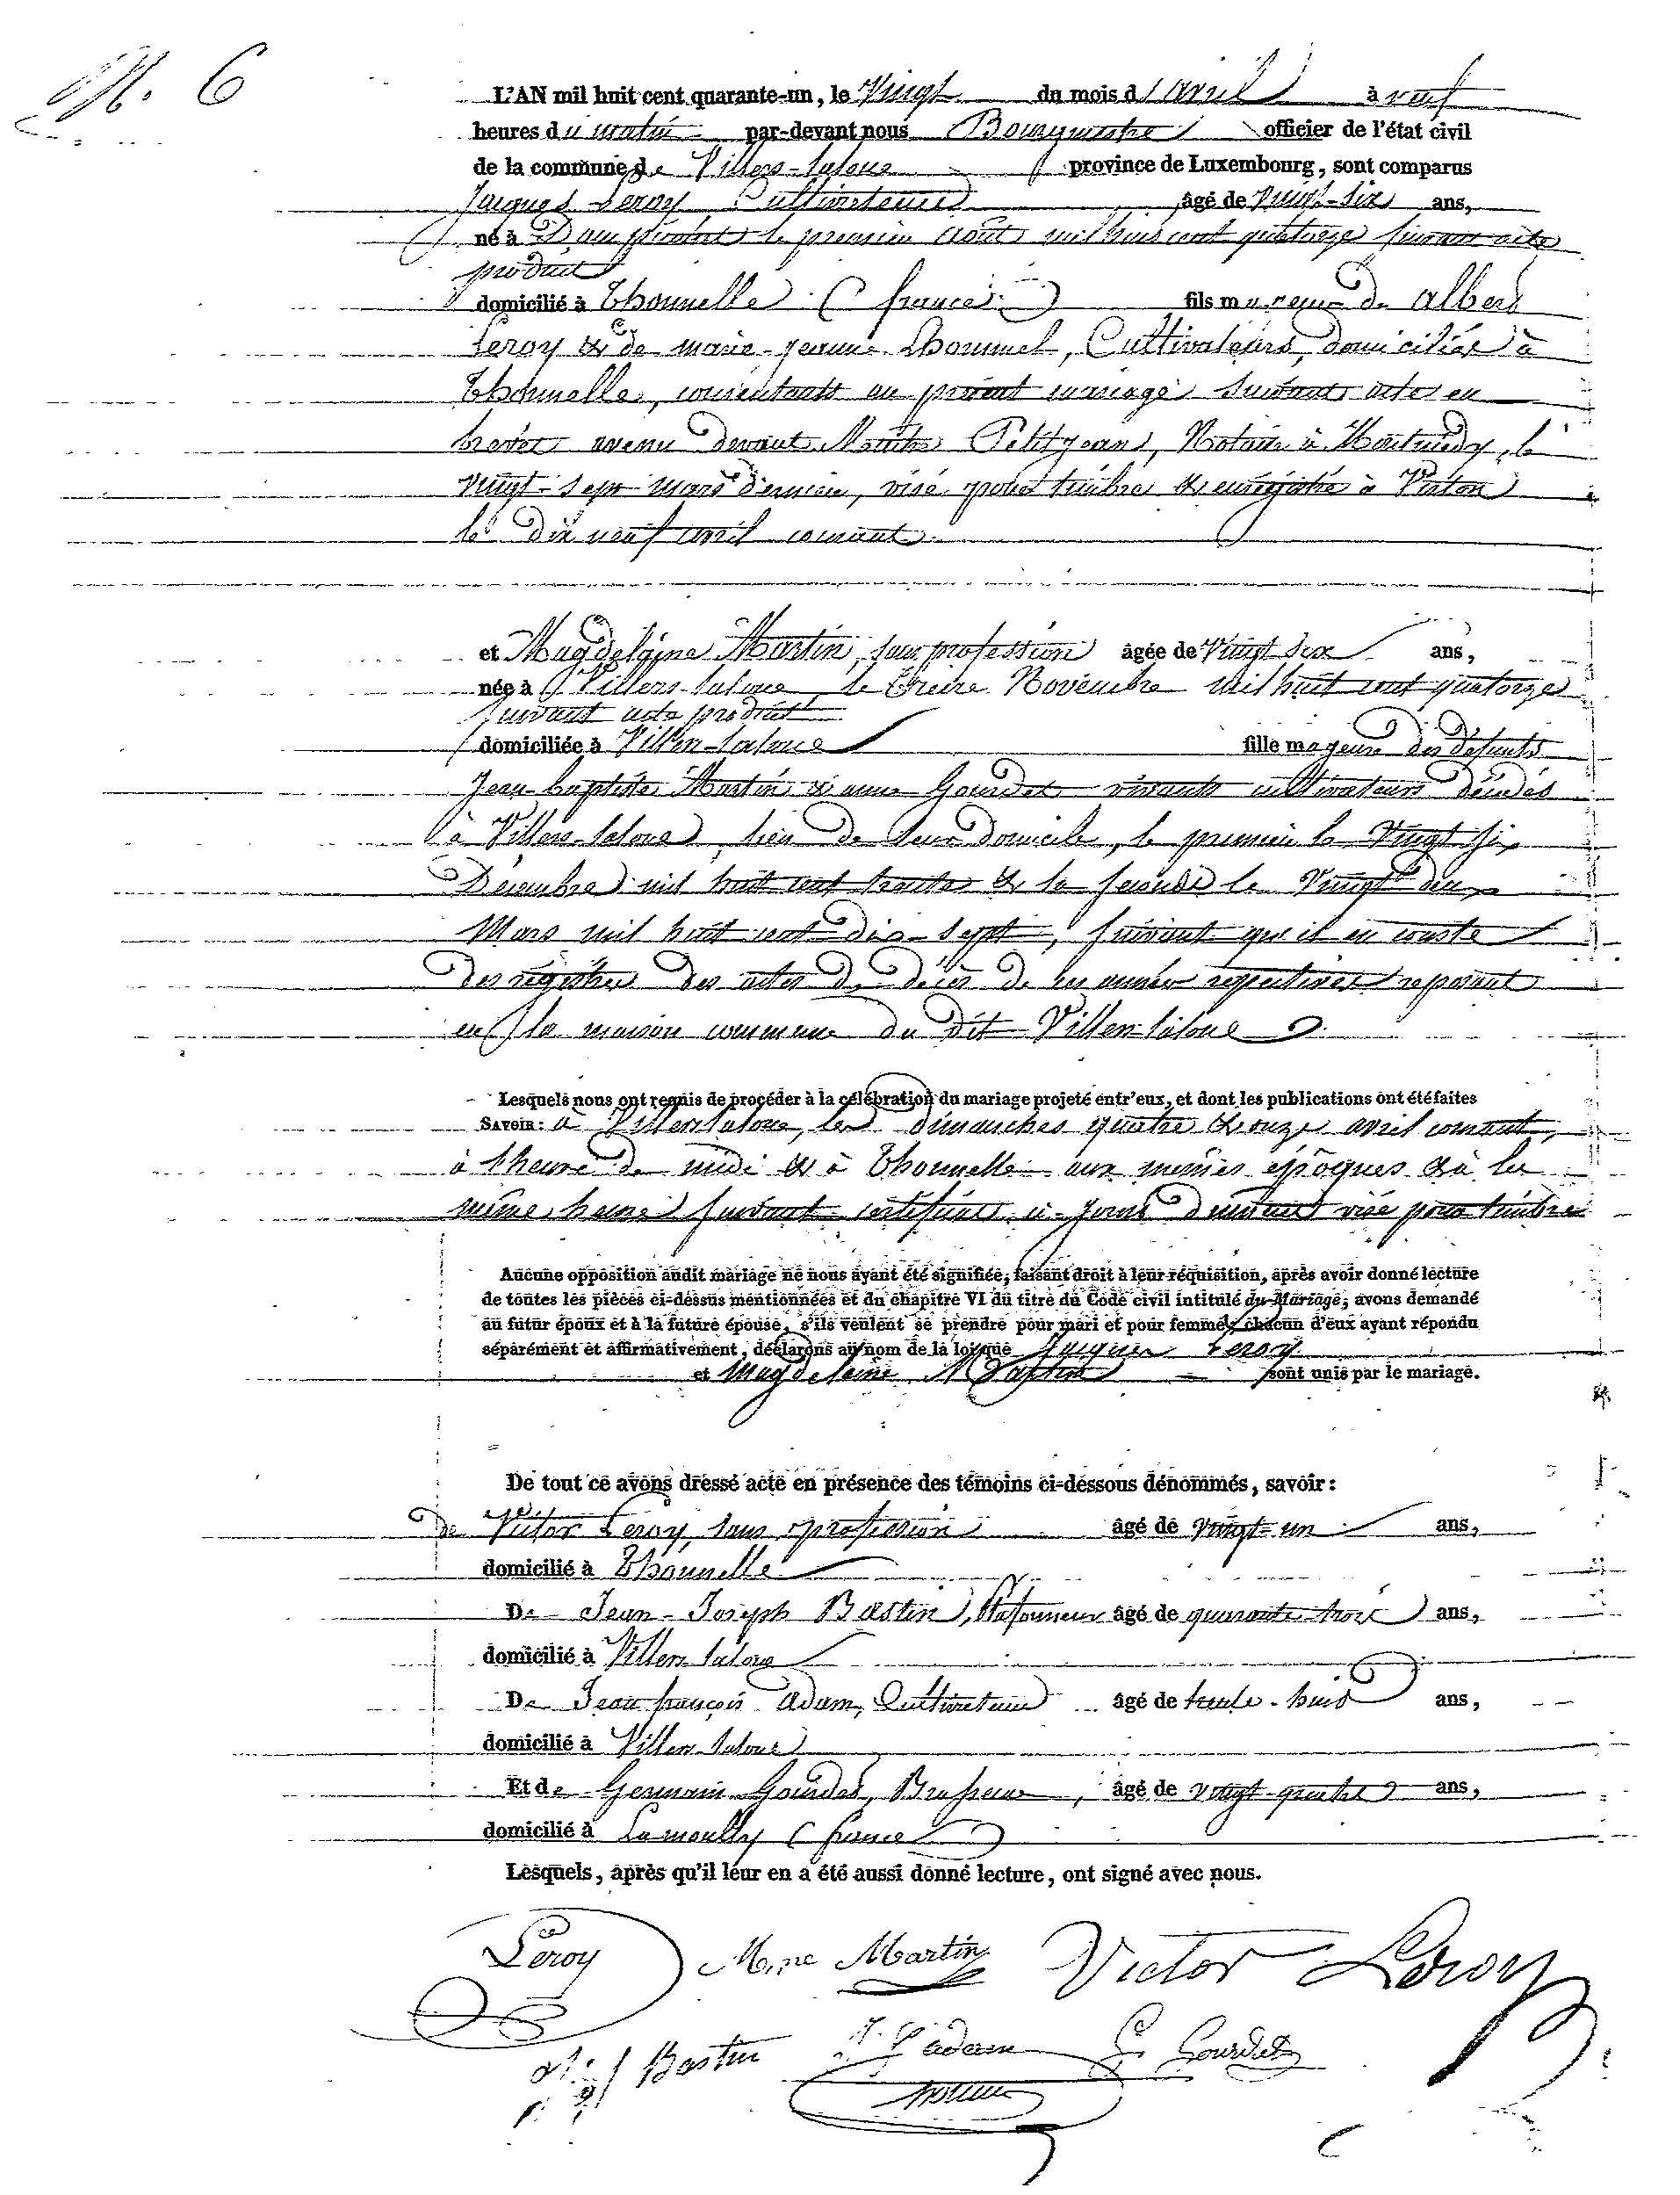 N. 6
L'AN mil huit cent quarante-un, le Vingt du mois d'avril à neuf
heures du matin par-devant nous Bourgmestre officier de l'état civil
de la commune de Villers-laloue province de Luxembourg, sont comparus
Jacques Leroy Cultivateur âgé de Vingt-six ans,
né à le premier août mil huit cent quatorze suivant acte
produit
domicilié à Thonnelle (france) fils majeur de Albert
Leroy & de marie-jeanne Lhommel, Cultivateurs, domiciliés à
Thonnelle, consentants au présent mariage suivant acte en
brevet avenu devant Maître Petitjean, Notaire à Montmédy, le
vingt-sept mars dernier, visé pour timbre & enrégistré à Virton
le dix neuf avril courant.
et Magdelaine Martin, sans profession âgée de Vingt six ans,
née à Villers-laloue, le treize Novembre mil huit cent quatorze
suivant acte produit
domiciliée à Villers-laloue fille majeure des défunts
Jean baptiste Martin & anne Gourdet vivants cultivateurs décédés
à Villers-laloue, lieu de leur domicile, le premier le Vingt six
Décembre mil huit cent trente & la seconde le Vingt deux
Mars mil huit cent dix-sept, suivant qu'il en conste
des régistres des actes de décès de ces années respectives reposant
en la maison commune du dit Villers-laloue
Lesquels nous ont requis de procéder à la célébration du mariage projeté entr'eux, et dont les publications ont été faites
SAVOIR: à Villers-laloue, les dimanches quatre & onze avril courant,
à l'heure de midi & à Thonnelle aux mêmes époques & à la
même heure suivant certificat ci-joint dument visé pour timbre
Aucune opposition audit mariage ne nous ayant été signifiée, faisant droit à leur réquisition, après avoir donné lecture
de toutes les pièces ci-dessus mentionnées et du chapitre VI du titre du Code civil intitulé du Mariage, avons demandé
au futur époux et à la future épouse, s'ils veulent se prendre pour mari et pour femme, chacun d'eux ayant répondu
séparément et affirmativement, déclarons au nom de la loi que Jacques Leroy
et Magdelaine Martin sont unis par le mariage.
De tout ce avons dressé acte en présence des témoins ci-dessous dénommés, savoir:
de Victor Leroy, sans profession âgé de vingt-un ans,
domicilié à Thonnelle
De Jean-Joseph Bastin, Plafonneur âgé de quarante-trois ans,
domicilié à Villers-laloue
De Jean françois adam, Cultivateur âgé de trente-huit ans,
domicilié à Villers-laloue
Et de Germain Gourdet, Brasseur, âgé de vingt-quatre ans,
domicilié à Lamoully (france)
Lesquels, après qu'il leur en a été aussi donné lecture, ont signé avec nous.
Leroy M.ne Martin Victor Leroy
Bastin J. f adam G Gourdet